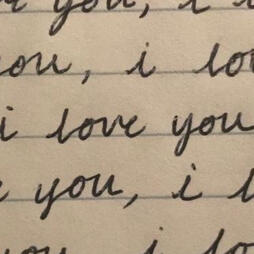 you, i
you, i lo
i love you
you, i l
you i lo